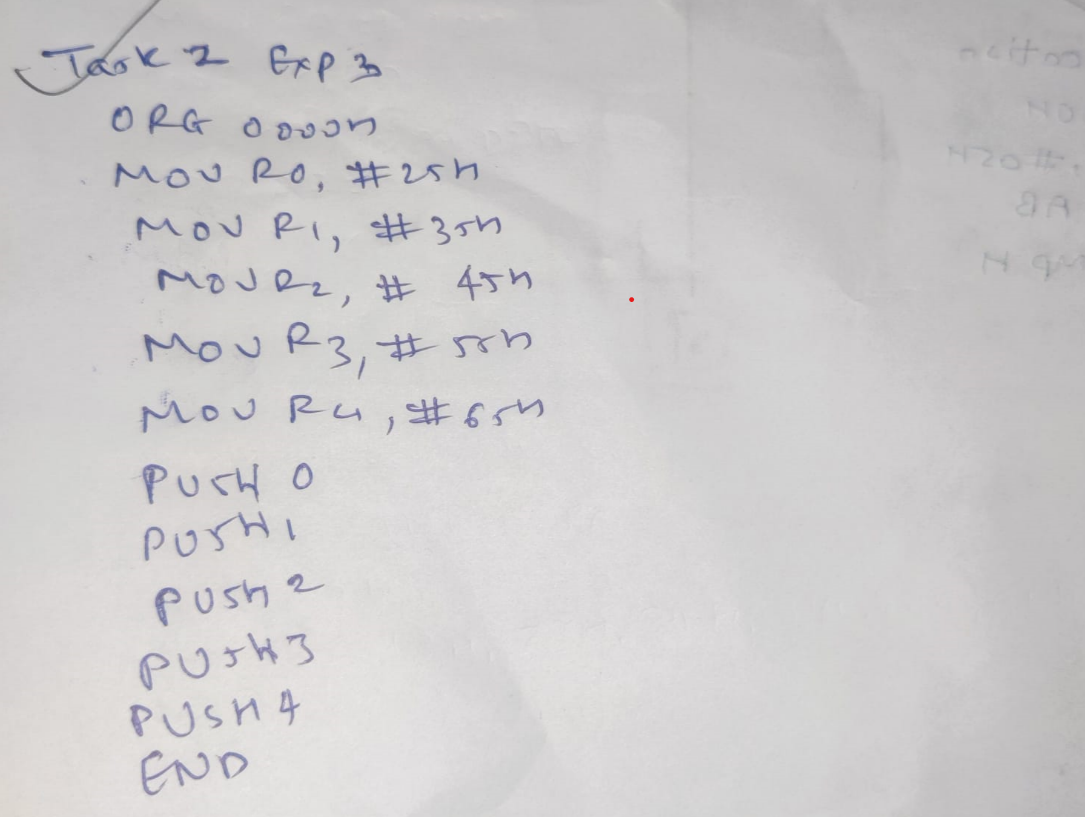 Task 2 Exp 3
ORG 0000H
MOV R0, #25H
MOV R1, #35H
MOV R2, # 45H
MOV R3, #55H
MOV R4, #65H
PUSH 0
PUSH 1
PUSH 2
PUSH 3
PUSH 4
END